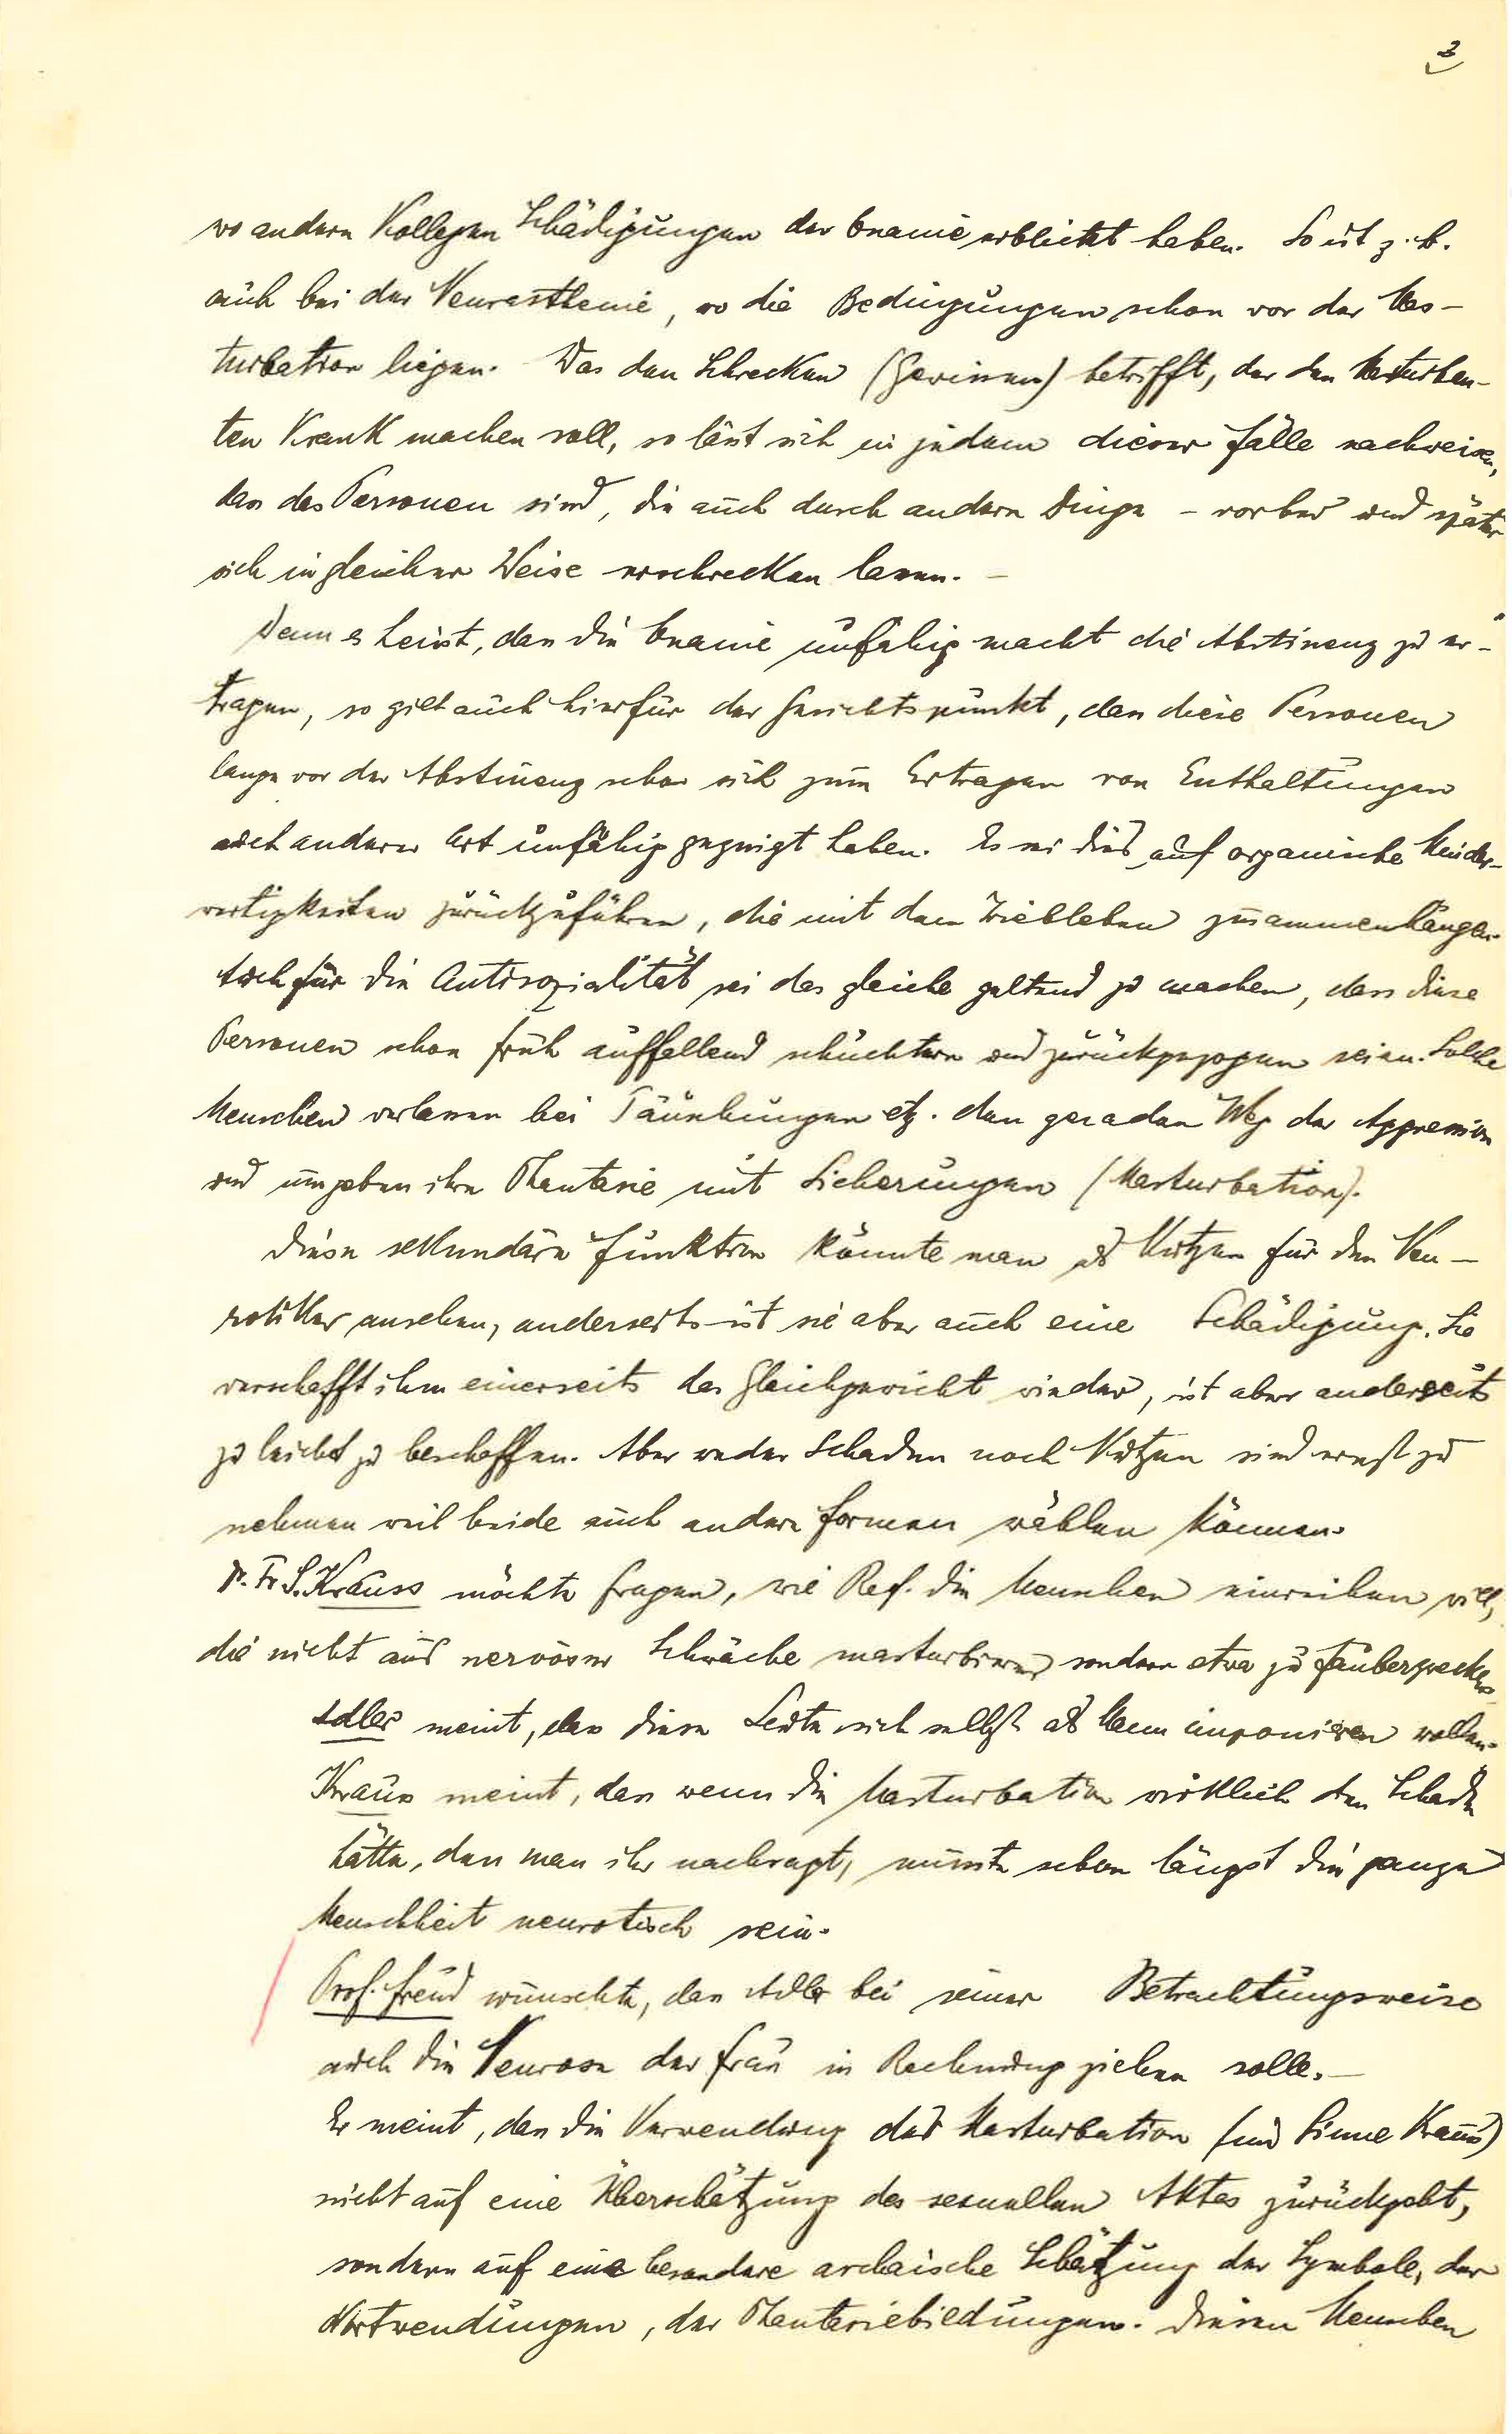 3
wo andere Kollegen Schädigungen der Onanie erblickt haben. So ist z. B.
auch bei der Neurasthenie, wo die Bedingungen schon vor der Mas-
turbation liegen. Was den Schrecken (Gewissen) betrifft, der den Masturban-
ten krank machen soll, so lässt sich in jedem dieser Fälle nachweisen,
dass das Personen sind, die auch durch andere Dinge – vorher und später
sich in gleicher Weise erschrecken lassen. –
Wenn es heisst, dass die Onanie unfähig macht die Abstinenz zu er-
tragen, so gilt auch hierfür der Gesichtspunkt, dass diese Personen
lange vor der Abstinenz schon sich zum Ertragen von Enthaltungen
auch anderer Art unfähig gezeigt haben. Es sei dies auf organische Minder-
wertigkeiten zurückzuführen, die mit dem Triebleben zusammenhängen.
Auch für die Antisozialität sei das gleiche geltend zu machen, dass diese
Personen schon früh auffallend schüchtern und zurückgezogen seien. Solche
Menschen verlassen bei Täuschungen etz. den geraden Weg der Aggression
und umgeben ihre Phantasie mit Sicherungen (Masturbation).
Diese sekundäre Funktion könnte man als Nutzen für den Neu-
rotiker ansehen, anderseits ist sie aber auch eine Schädigung. Sie
verschafft ihm einerseits das Gleichgewicht wieder, ist aber anderseits
zu leicht zu beschaffen. Aber weder Schaden noch Nutzen sind ernst zu
nehmen weil beide auch andere Formen wählen können.
Dr. Fr. S. Krauss möchte fragen, wie Ref. die Menschen einreihen will,
die nicht aus nervöser Schwäche masturbieren sondern etwa zu Zauberzwecken
Adler meint, dass diese Leute sich selbst als Mann imponieren wollen.
Krauss meint, dass wenn die Masturbation wirklich den Schaden
hätte, den man ihr nachsagt, müsste schon längst die ganze
Menschheit neurotisch sein.
Prof. Freud wünschte, dass Adler bei seiner Betrachtungsweise
auch die Neurose der Frau in Rechnung ziehen solle. –
Er meint, dass die Verwendung der Masturbation (im Sinne Krauss)
nicht auf eine Überschätzung des sexuellen Aktes zurückgeht,
sondern auf eine besondere archaische Schätzung der Symbole, der
Wortwendungen, der Phantasiebildungen. Diesen Menschen